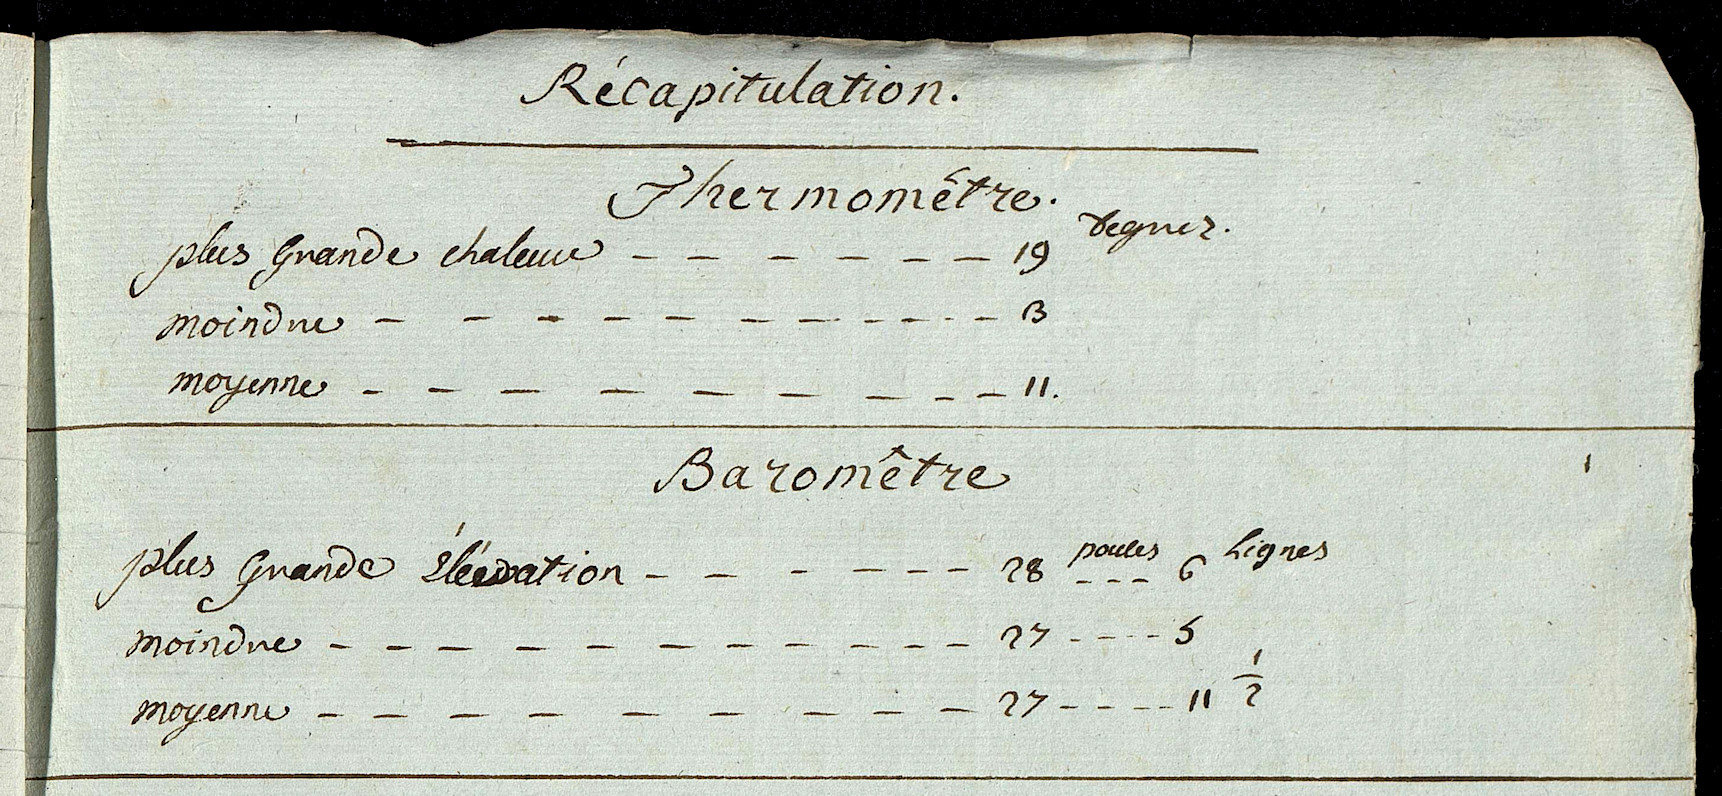 Récapitulation.
Thermomêtre.
degrez.
plus Grande chaleur — — — — — — — 19
moindre — — — — — — — — — — — 3
moyenne — — — — — — — — — 11.
Baromêtre
plus Grande Élévation — — — — — — 28 pouces - - - 6 Lignes
moindre — — — — — — — — — — — 27 - - - - 5
moyenne — — — — — — — — — 27 - - - - 11 1/2